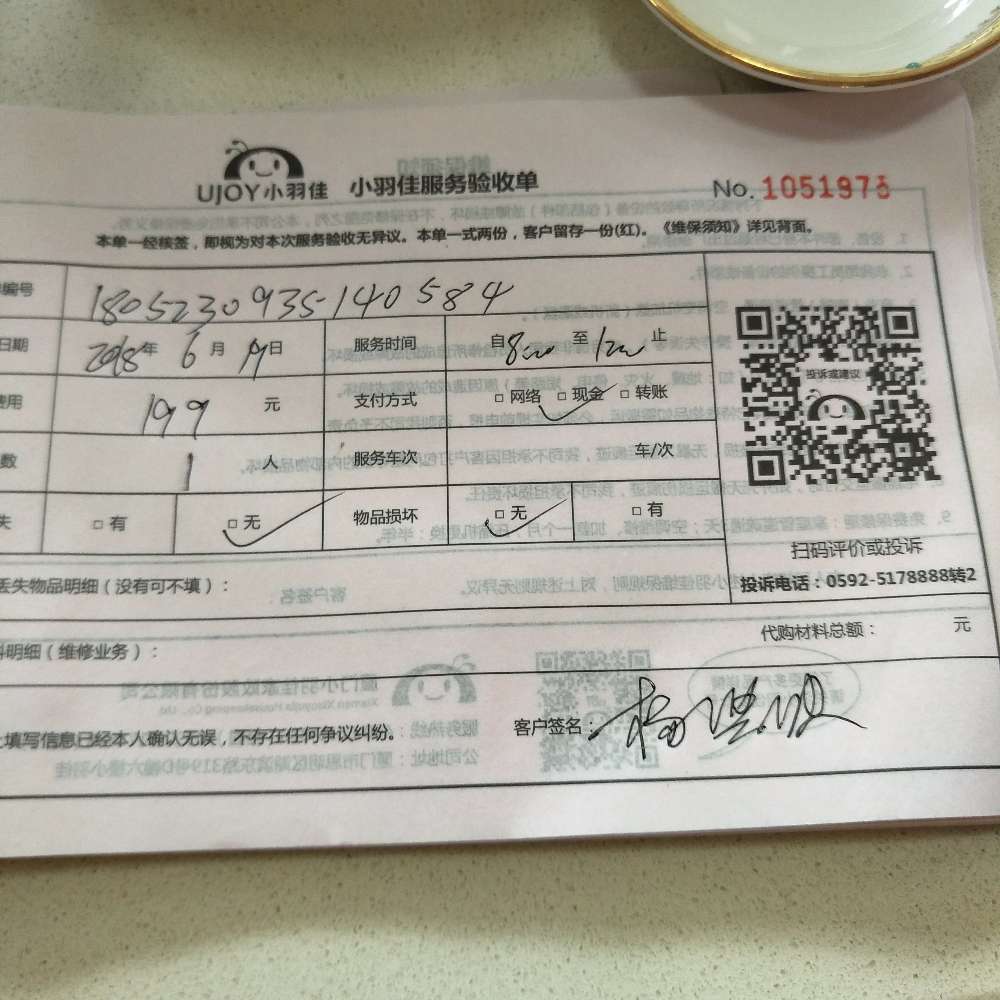 UJOY小羽佳 小羽佳服务验收单 No. 1051978
本单一经核签，即视为对本次服务验收无异议。本单一式两份，客户留存一份(红)。《维保须知》详见背面。
编号 180523093514 0584
日期 2018年 6月 19日 服务时间 自8:00 至12:00止
费用 199 元 支付方式 □网络 □现金 □转账
数 1 人 服务车次 车/次
失 □有 □无 物品损坏 □无 □有
投诉或建议
扫码评价或投诉
丢失物品明细（没有可不填）： 投诉电话：0592-5178888转2
料明细（维修业务）： 代购材料总额： 元
上填写信息已经本人确认无误，不存在任何争议纠纷。 客户签名：